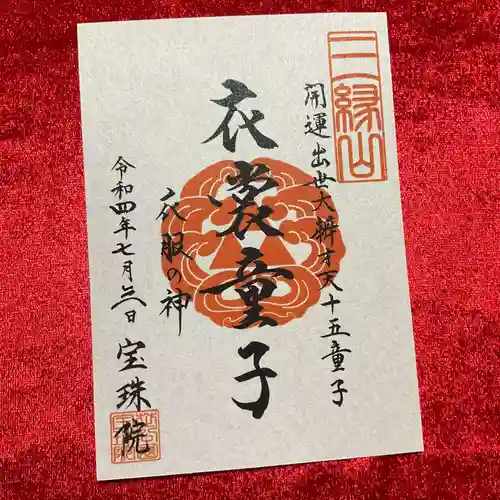 三縁山
開運出世大辨才天十五童子
衣裳童子
衣服の神
令和四年七月三日
宝珠院